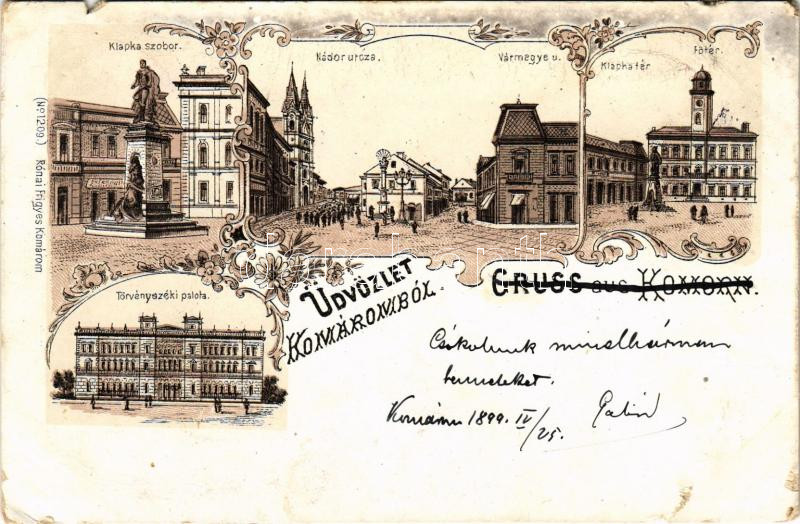 Klapka szobor.
Nádor utcza.
Vármegye u.
Klapka tér
Fő tér.
(No 1209.) Rónai Frigyes Komárom
Törvényszéki palota.
ÜDVÖZLET
KOMÁROMBÓL.
GRUSS aus KOMORN.
Csókolunk mindhárman
benneteket.
Komárom 1899. IV/25.